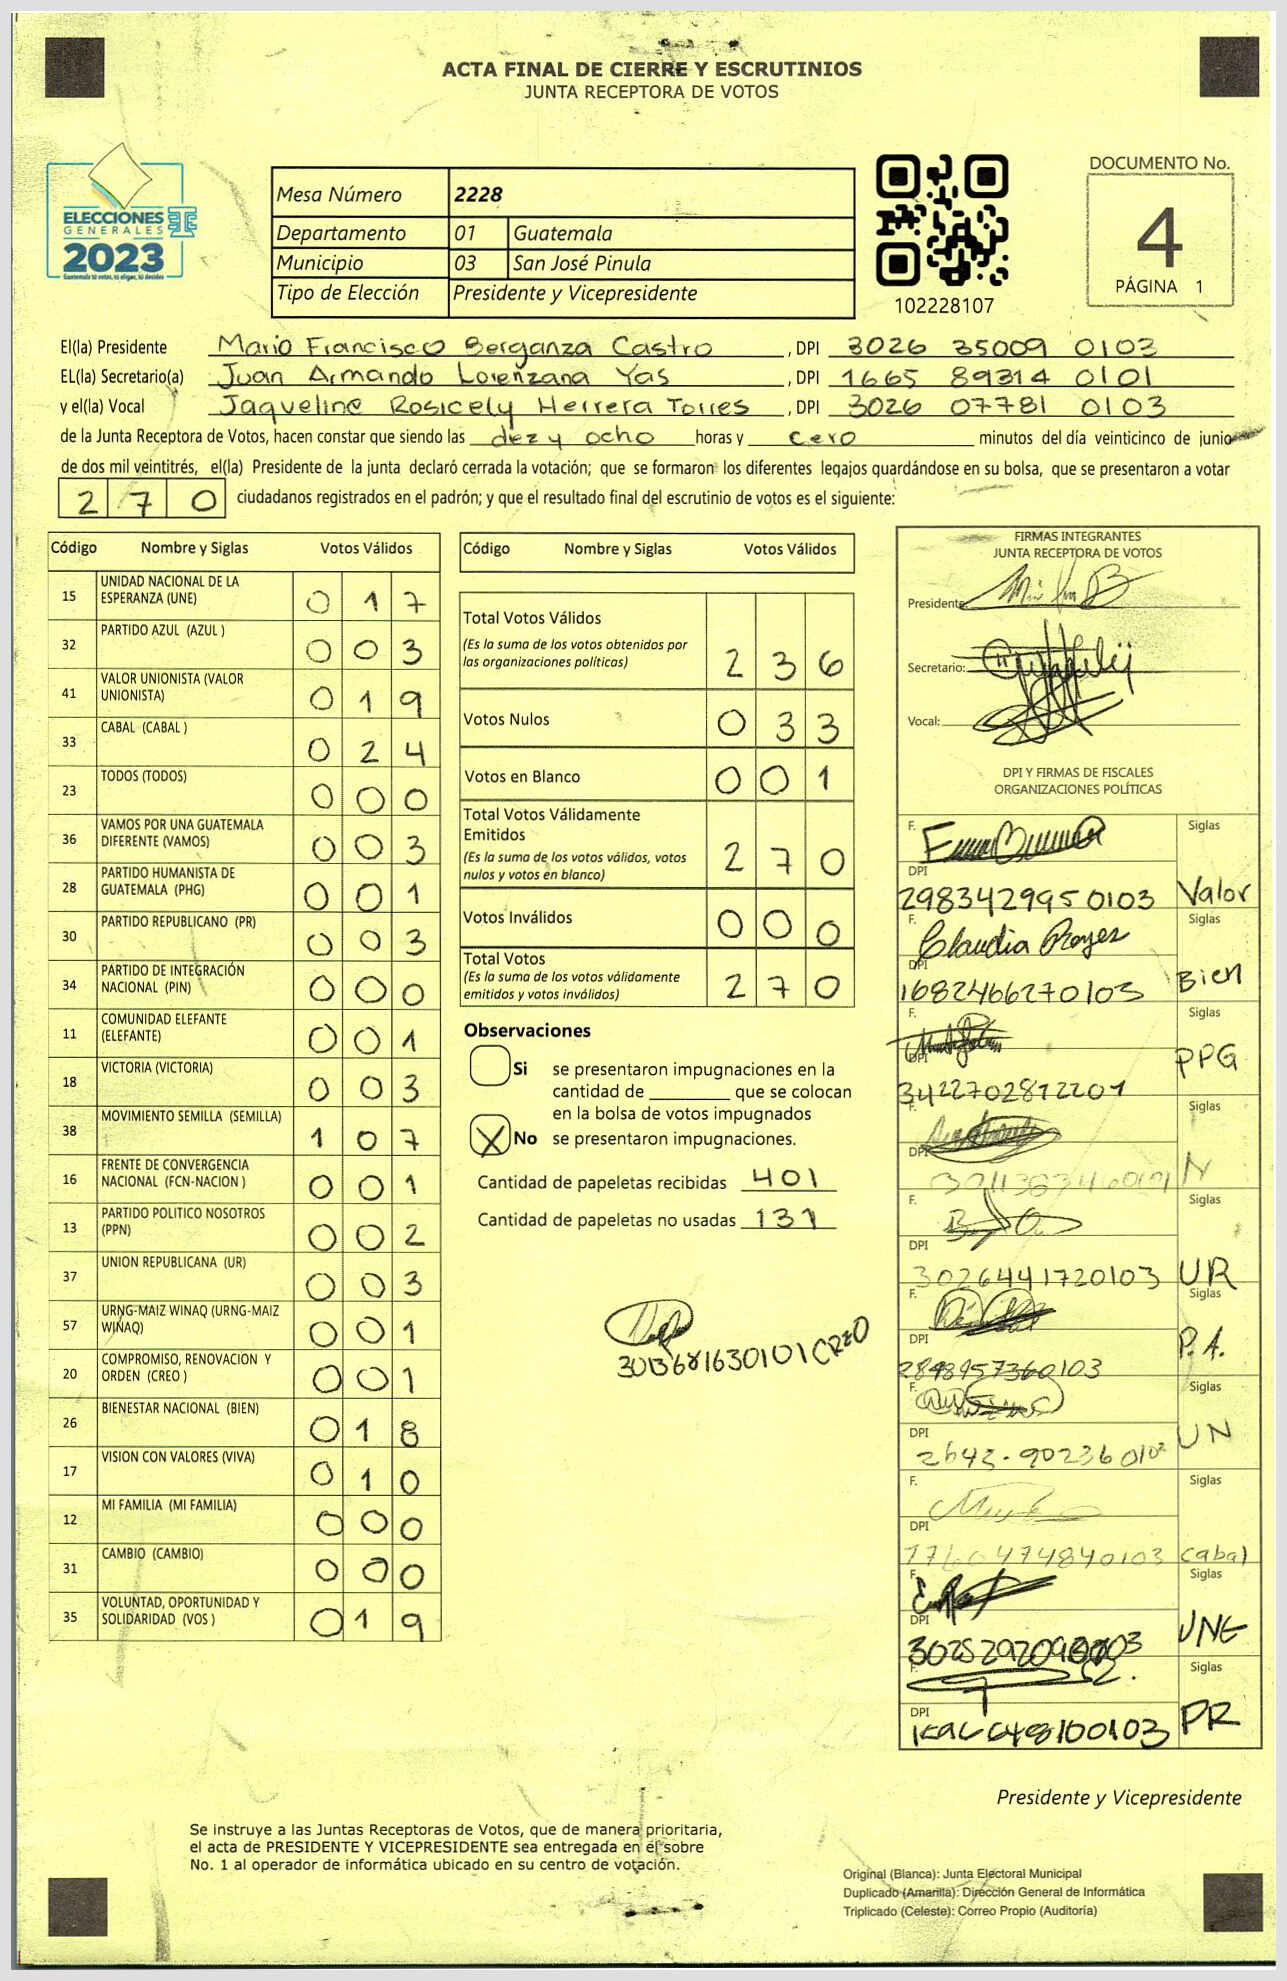 ACTA FINAL DE CIERRE Y ESCRUTINIOS
JUNTA RECEPTORA DE VOTOS
ELECCIONES
GENERALES
2023
Guatemala tú votas, tú eliges, tú decides
Mesa Número 2228
Departamento 01 Guatemala
Municipio 03 San José Pinula
Tipo de Elección Presidente y Vicepresidente
102228107
DOCUMENTO No.
4
PÁGINA 1
El(la) Presidente Mario Francisco Berganza Castro , DPI 3026 35009 0103
EL(la) Secretario(a) Juan Armando Lorenzana Yas , DPI 1665 89314 0101
y el(la) Vocal Jaqueline Rosicely Herrera Torres , DPI 3026 07781 0103
de la Junta Receptora de Votos, hacen constar que siendo las dez y ocho horas y cero minutos del día veinticinco de junio
de dos mil veintitrés, el(la) Presidente de la junta declaró cerrada la votación; que se formaron los diferentes legajos quardándose en su bolsa, que se presentaron a votar
270 ciudadanos registrados en el padrón; y que el resultado final del escrutinio de votos es el siguiente:
Código Nombre y Siglas Votos Válidos
15 UNIDAD NACIONAL DE LA ESPERANZA (UNE) 017
32 PARTIDO AZUL (AZUL ) 003
41 VALOR UNIONISTA (VALOR UNIONISTA) 019
33 CABAL (CABAL ) 024
23 TODOS (TODOS) 000
36 VAMOS POR UNA GUATEMALA DIFERENTE (VAMOS) 003
28 PARTIDO HUMANISTA DE GUATEMALA (PHG) 001
30 PARTIDO REPUBLICANO (PR) 003
34 PARTIDO DE INTEGRACIÓN NACIONAL (PIN) 000
11 COMUNIDAD ELEFANTE (ELEFANTE) 001
18 VICTORIA (VICTORIA) 003
38 MOVIMIENTO SEMILLA (SEMILLA) 107
16 FRENTE DE CONVERGENCIA NACIONAL (FCN-NACION ) 001
13 PARTIDO POLITICO NOSOTROS (PPN) 002
37 UNION REPUBLICANA (UR) 003
57 URNG-MAIZ WINAQ (URNG-MAIZ WINAQ) 001
20 COMPROMISO, RENOVACION Y ORDEN (CREO ) 001
26 BIENESTAR NACIONAL (BIEN) 018
17 VISION CON VALORES (VIVA) 010
12 MI FAMILIA (MI FAMILIA) 000
31 CAMBIO (CAMBIO) 000
35 VOLUNTAD, OPORTUNIDAD Y SOLIDARIDAD (VOS ) 019
Código Nombre y Siglas Votos Válidos
Total Votos Válidos 236
(Es la suma de los votos obtenidos por
las organizaciones políticas)
Votos Nulos 033
Votos en Blanco 001
Total Votos Válidamente
Emitidos 270
(Es la suma de los votos válidos, votos
nulos y votos en blanco)
Votos Inválidos 000
Total Votos 270
(Es la suma de los votos válidamente
emitidos y votos inválidos)
Observaciones
Si se presentaron impugnaciones en la
cantidad de ________ que se colocan
en la bolsa de votos impugnados
X No se presentaron impugnaciones.
Cantidad de papeletas recibidas 401
Cantidad de papeletas no usadas 131
3013681630101 CREO
FIRMAS INTEGRANTES
JUNTA RECEPTORA DE VOTOS
Presidente:
Secretario:
Vocal:
DPI Y FIRMAS DE FISCALES
ORGANIZACIONES POLÍTICAS
F. Siglas
DPI 2983429950103 Valor
F. Claudia Reyes Siglas
DPI 1682466270103 Bien
F. Siglas
DPI 3422702812201 PPG
F. Siglas
DPI N
F. Siglas
DPI 3026441720103 UR
F. Siglas
DPI 2898957360103 P.A.
F. Siglas
DPI 2643-902360102 UN
F. Siglas
DPI 1760474840103 Cabal
F. Siglas
DPI UNE
F. Siglas
DPI PR
Presidente y Vicepresidente
Se instruye a las Juntas Receptoras de Votos, que de manera prioritaria,
el acta de PRESIDENTE Y VICEPRESIDENTE sea entregada en el sobre
No. 1 al operador de informática ubicado en su centro de votación.
Original (Blanca): Junta Electoral Municipal
Duplicado (Amarilla): Dirección General de Informática
Triplicado (Celeste): Correo Propio (Auditoría)